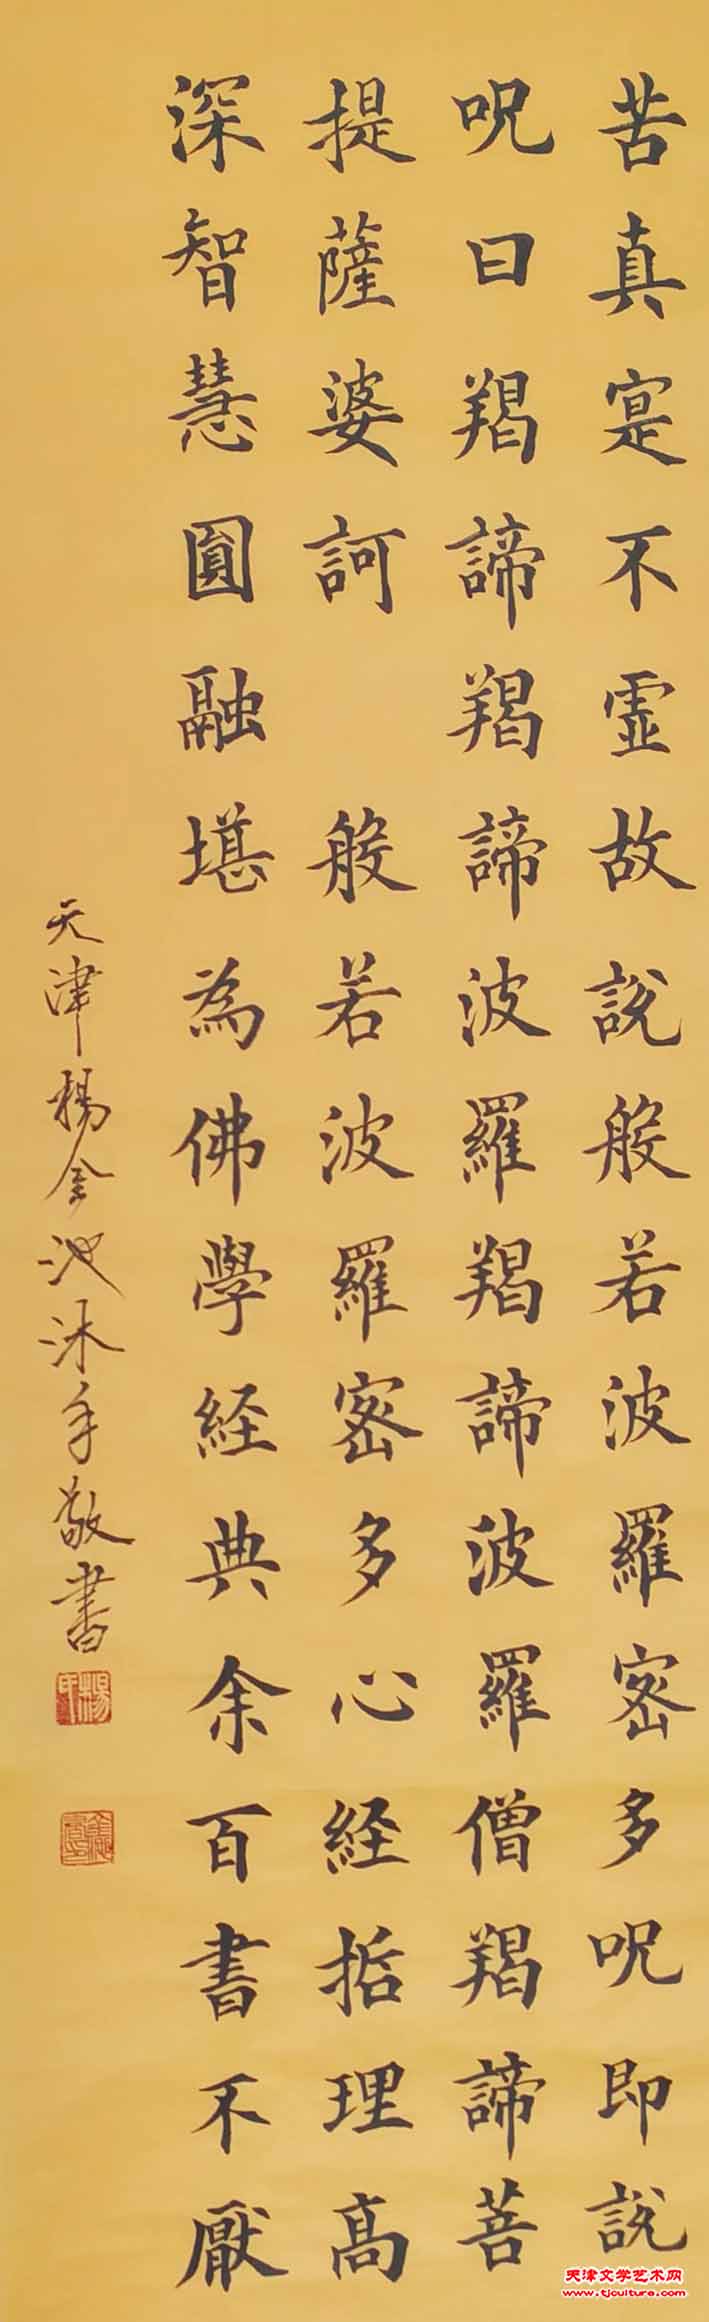 苦真寔不虚故說般若波羅密多呪即說
呪曰羯諦羯諦波羅羯諦波羅僧羯諦菩
提薩婆訶 般若波羅密多心経哲理高
深智慧圓融堪為佛學経典余百書不厭
天津楊金池沐手敬書
天津文学艺术网
www.tjculture.com